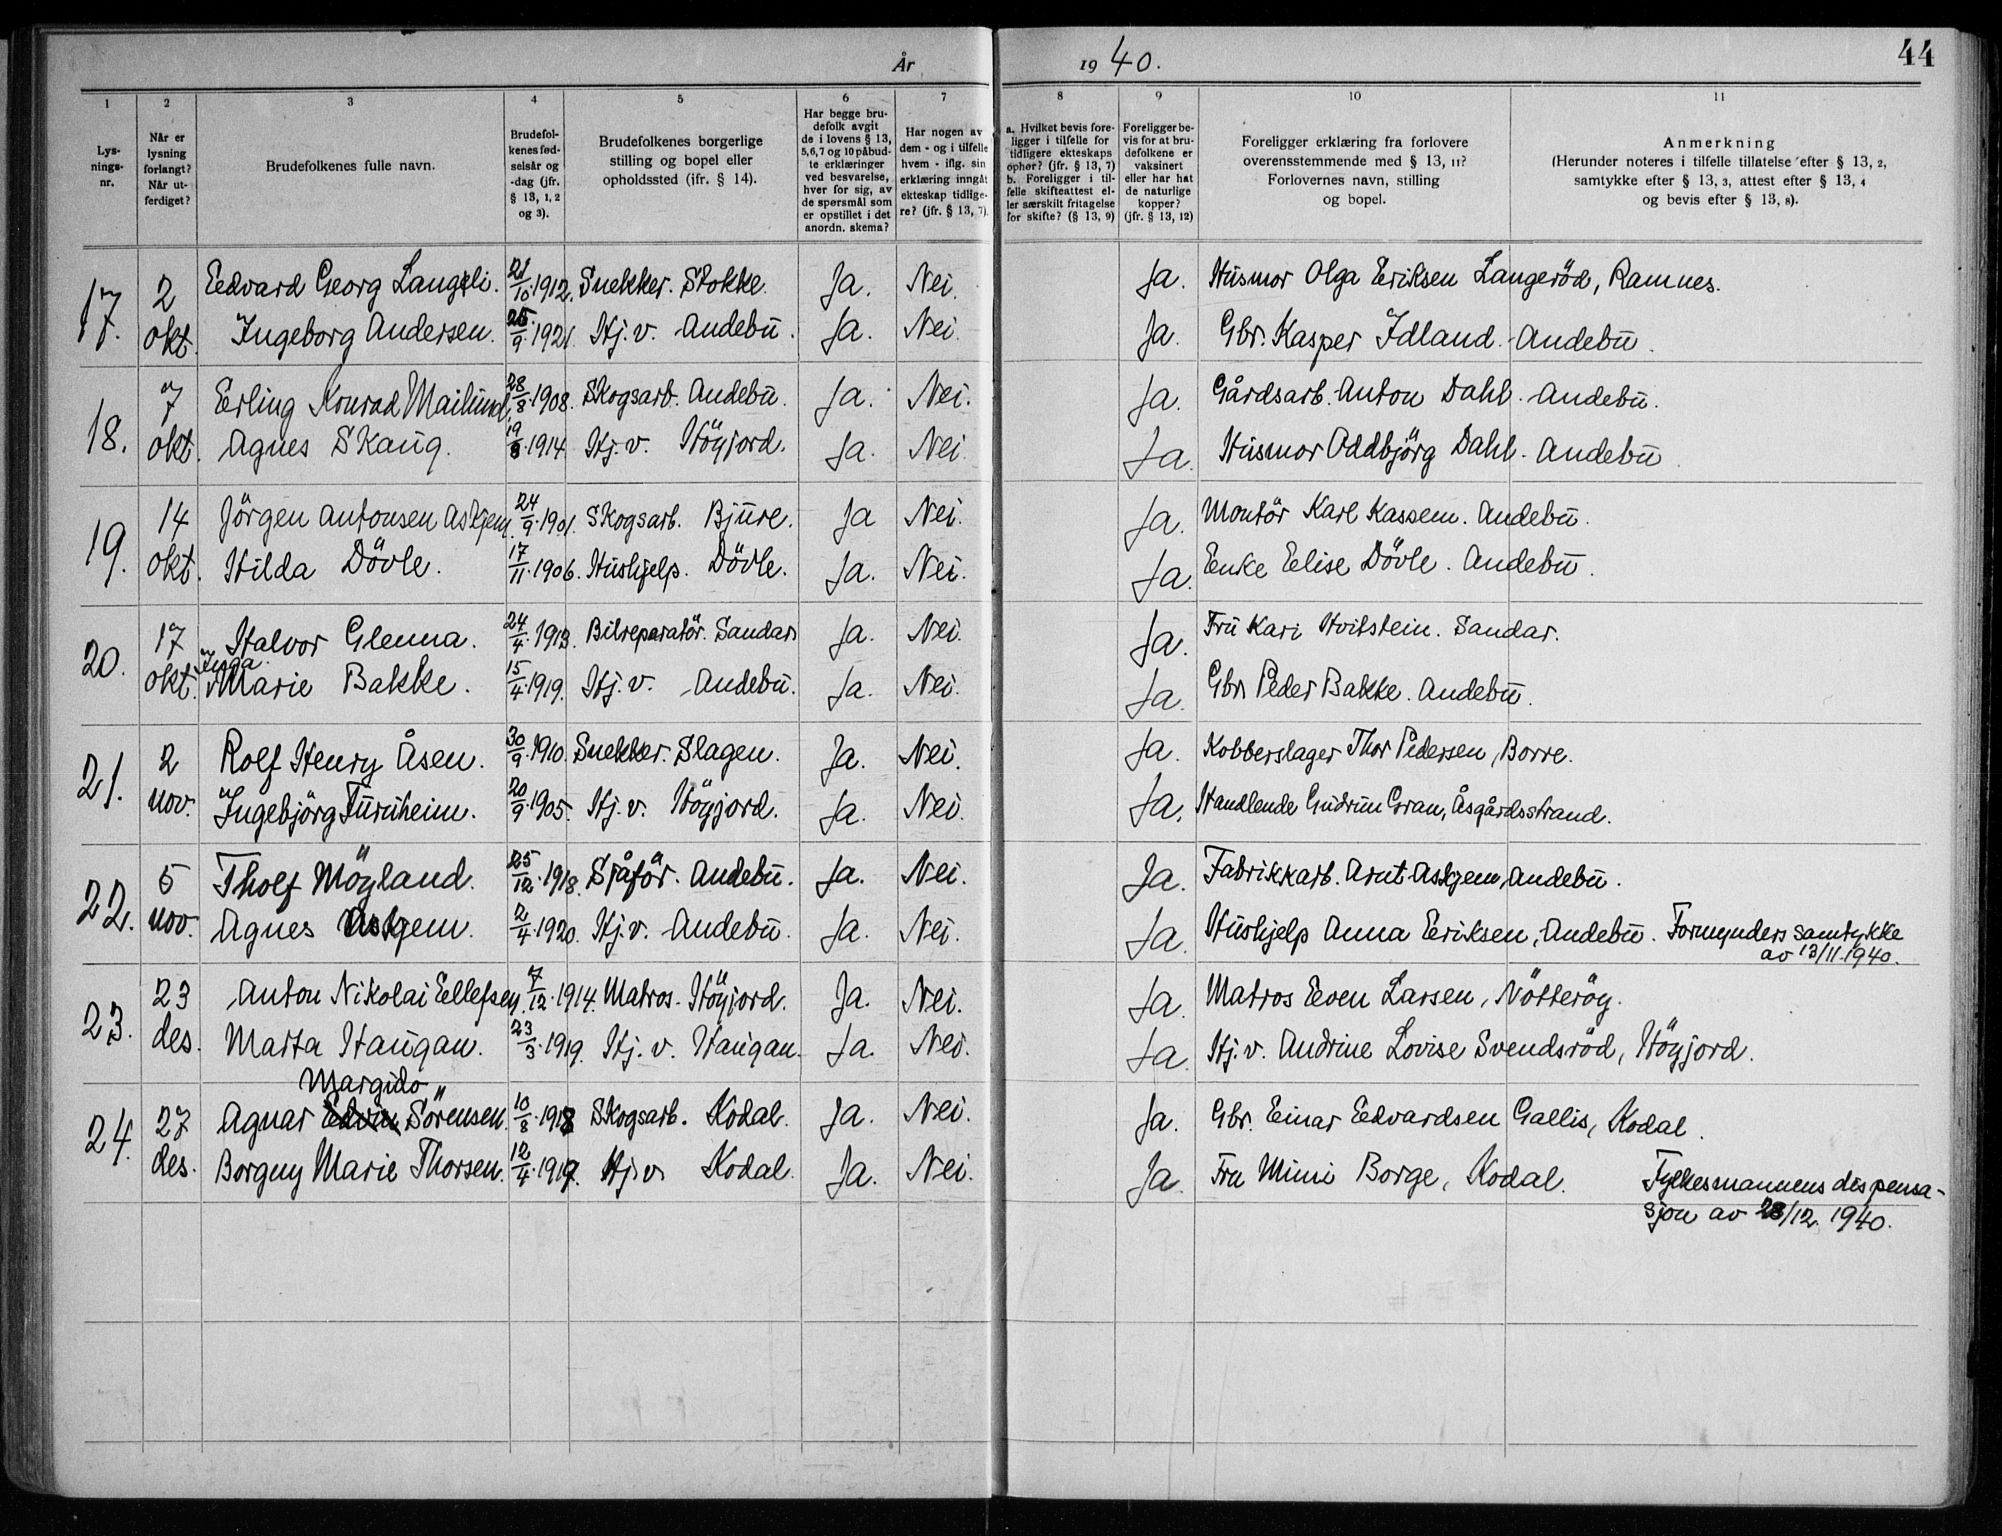 År 1940. 44
1 2 3 4 5 6 7 8 9 10 11
Lys-
nings-
nr.
Når er
lysning
forlangt?
Når ut-
ferdiget?
Brudefolkenes fulle navn.
Brudefol-
kenes fød-
selsår og
-dag (jfr.
§ 13, 1, 2
og 3).
Brudefolkenes borgerlige
stilling og bopel eller
opholdssted (ifr. § 14).
Har begge bru-
defolk avgit
de i lovens § 13,
5,6,7 og 10 påbud-
te erklæringer
ved besvarelse,
hver for sig, av
de spørsmål som
er opstillet i det
anordn. skema?
Har nogen av
dem - og i tilfelle
hvem - iflg. sin
erklæring inngåt
ekteskap tidlige-
re? (jfr. § 13, 7).
a. Hvilket bevis fore-
ligger i tilfelle for
tidligere ekteskaps
ophør? (jfr. § 13, 7)
b. Foreligger i til-
felle skifteattest el-
ler særskilt fritagelse
for skifte? (§ 13, 9)
Foreligger be-
vis for at bru-
defolkene er
vaksinert
eller har hat
de naturlige
kopper?
(jfr. § 13, 12)
Foreligger erklæring fra forlovere
overensstemmende med § 13, 11?
Forlovernes navn, stilling
og bopel.
Anmerkning
(Herunder noteres i tilfelle tillatelse efter § 13, 2,
samtykke efter § 13, 3, attest efter § 13, 4
og bevis efter § 13, 8).
17. 2 Edvard Georg Langeli. 21/10.1912. Snekker. Stokke. Ja. Nei. Ja. Husmor Olga Eriksen Langeröd, Ramnes.
okt. Ingeborg Andersen. 25/9.1921. Hj.v. Andebu. Ja. Nei. Ja. Gbr. Kasper Idland. Andebu.
18. 7 Erling Konrad Mailund. 28/8.1908. Skogsarb. Andebu. Ja. Nei. Ja. Gårdsarb. Anton Dahl. Andebu.
okt. Agnes Skaug. 19/8.1914 Hj.v. Höyjord. Ja. Nei. Ja. Husmor Oddbjörg Dahl. Andebu.
19. 14 Jörgen Antonsen Askjem. 24/9.1901. Skogsarb. Bjure. Ja Nei. Ja. Montör Karl Kassem. Andebu.
okt. Hilda Dövle. 17/11.1906. Hushjelp. Dövle. Ja. Nei. Ja. Enke Elise Dövle. Andebu.
20. 17 Halvor Glenna. 24/4.1913. Bilreparatör. Sandar. Ja. Nei. Ja. Fru Kari Hvitstein. Sandar.
Inga
okt. Marie Bakke. 15/4.1919. Hj.v. Andebu. Ja. Nei. Ja. Gbr. Peder Bakke. Andebu.
21. 2 Rolf Henry Åsen. 30/9.1910. Snekker. Slagen. Ja. Nei. Ja. Kobberslager Thor Pedersen, Borre.
nov. Ingebjörg Furuheim. 20/9.1905. Hj.v. Höyjord. Ja. Nei. Ja. Handlende Gudrun Gran, Åsgårdsstrand.
22. 5 Tholf Möyland. 25/12.1918. Sjåför. Andebu. Ja. Nei. Ja. Fabrikkarb. Arnt Askjem, Andebu.
nov. Agnes Askjem. 2/4.1920. Hj.v. Andebu. Ja. Nei. Ja. Hushjelp Anna Eriksen, Andebu. Formynders samtykke
av 13/11.1940.
23. 23 Anton Nikolai Ellefsen. 7/12.1914. Matros. Höyjord. Ja. Nei. Ja. Matros Even Larsen, Nötteröy.
des. Marta Haugan. 23/3.1919. Hj.v. Haugan. Ja. Nei. Ja. Hj.v. Andrine Lovise Svendsröd, Höyjord.
Margido
24. 27 Agnar Edvin Sörensen. 10/8.1918 Skogsarb. Kodal. Ja. Nei. Ja. Gbr. Einar Edvardsen Gallis, Kodal.
des. Borgny Marie Thorsen. 12/4.1919. Hj.v. Kodal. Ja. Nei. Ja. Fru Mimi Borge, Kodal. Fylkesmannens dispensa-
sjon av 28/12.1940.